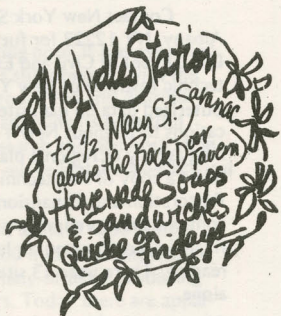 McArdles Station
72 1/2 Main St. Saranac
(above the Back Door
Tavern)
Homemade Soups
& Sandwiches
Quiche on Fridays